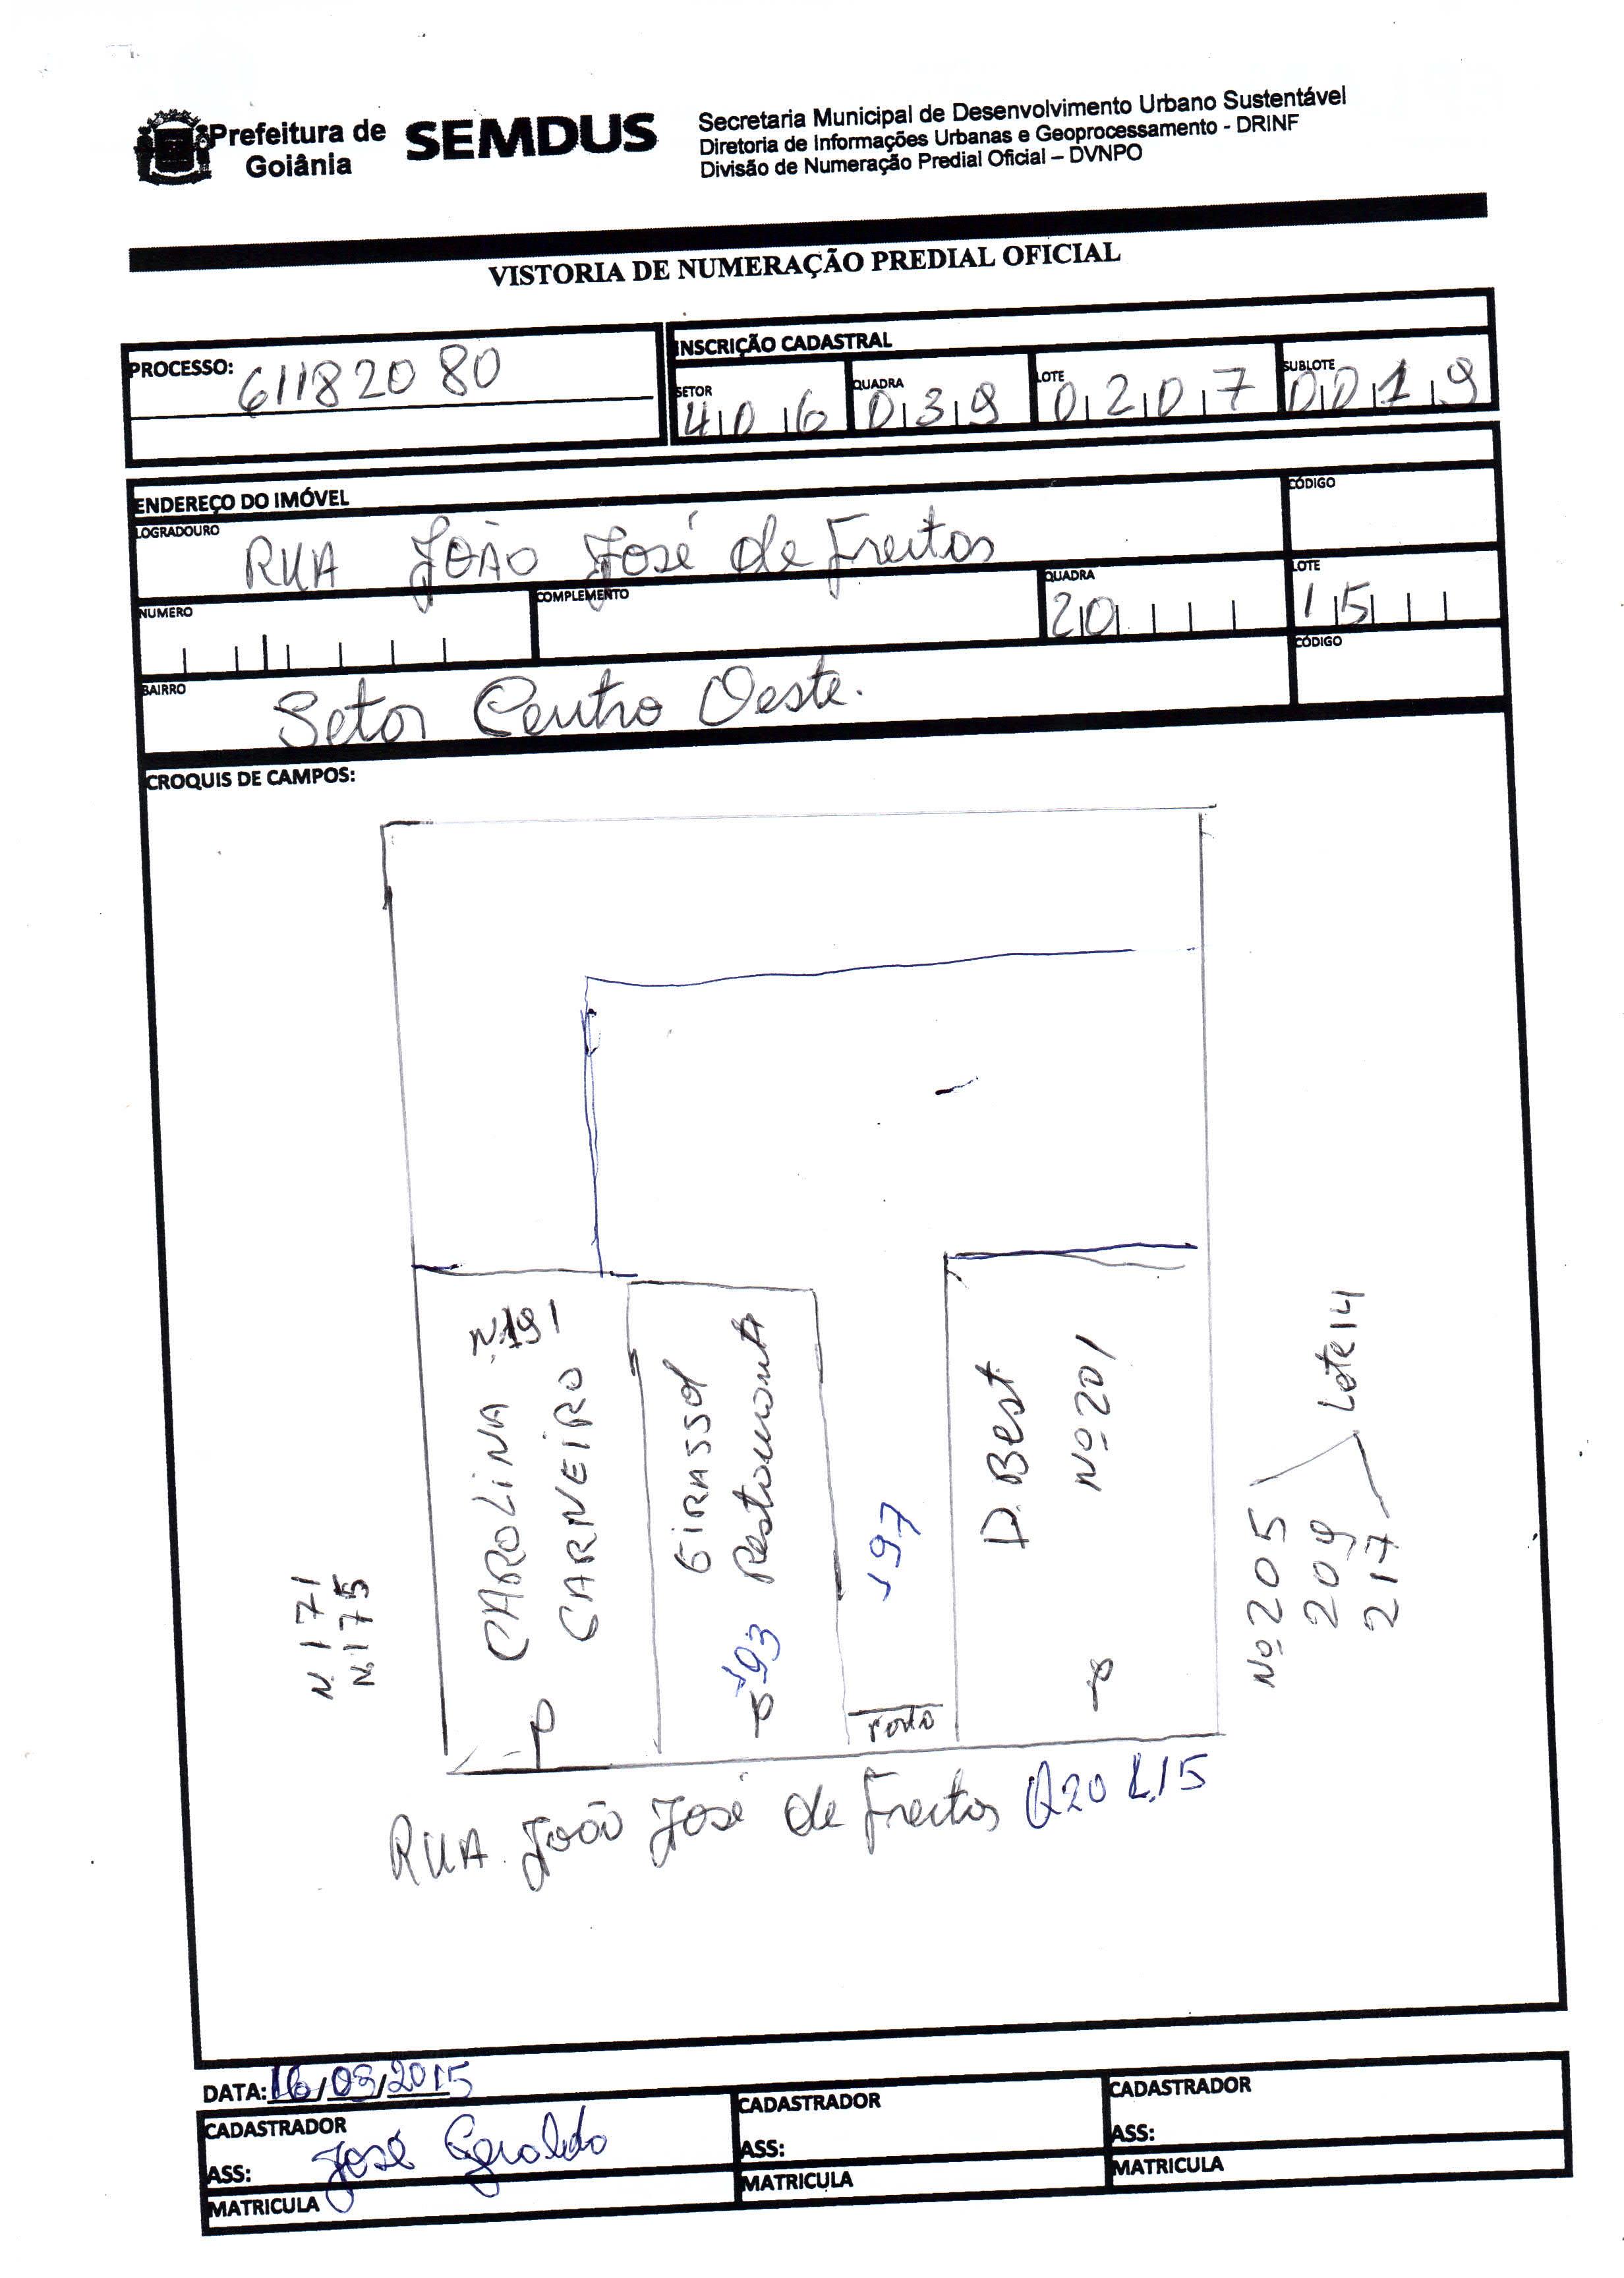 Prefeitura de
Goiânia
SEMDUS
Secretaria Municipal de Desenvolvimento Urbano Sustentável
Diretoria de Informações Urbanas e Geoprocessamento - DRINF
Divisão de Numeração Predial Oficial – DVNPO
VISTORIA DE NUMERAÇÃO PREDIAL OFICIAL
PROCESSO: 61182080
INSCRIÇÃO CADASTRAL
SETOR 406
QUADRA 039
LOTE 0207
SUBLOTE 0019
ENDEREÇO DO IMÓVEL
LOGRADOURO RUA JOÃO José de Freitas
CÓDIGO
NUMERO
COMPLEMENTO
QUADRA 20
LOTE 15
BAIRRO Setor Centro Oeste.
CÓDIGO
CROQUIS DE CAMPOS:
N. 171
N. 175
CAROLINA N.191
CARNEIRO
GIRASSOL
193 Restaurante
197
D. Best
Nº 201
Nº 205
209
217
Lote 14
RUA João José de Freitas Q20 L.15
DATA: 16/09/2015
CADASTRADOR
ASS: José Geraldo
MATRICULA
CADASTRADOR
ASS:
MATRICULA
CADASTRADOR
ASS:
MATRICULA